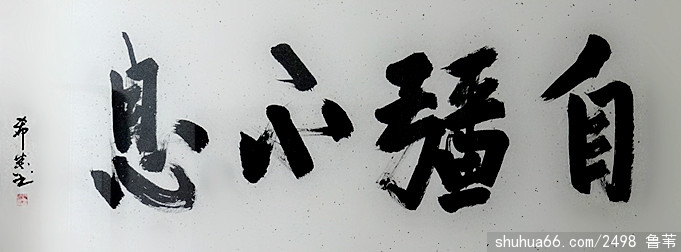 自彊不息
shuhua66.com/2498 鲁苇